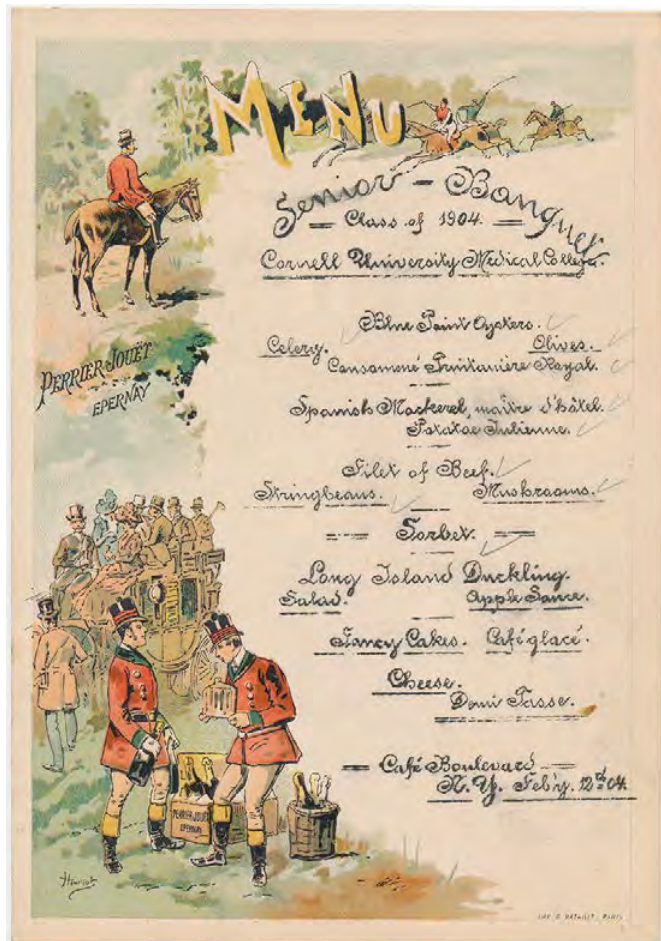 MENU
Senior - Banquet
= Class of 1904. =
Cornell University Medical College.
PERRIER JOUËT
EPERNAY
Blue Point Oysters.
Celery. Olives.
Consommé Printanière Royal.
Spanish Mackerel, maître d'hôtel.
Potatoe Julienne.
Filet of Beef.
Stringbeans. Mushrooms.
Sorbet.
Long Island Duckling.
Salad. Apple Sauce.
Fancy Cakes. Café glacé.
Cheese.
Demi Tasse.
= Café Boulevard =
N. Y. Feb'y. 12th 04.
PERRIER JOUËT
EPERNAY